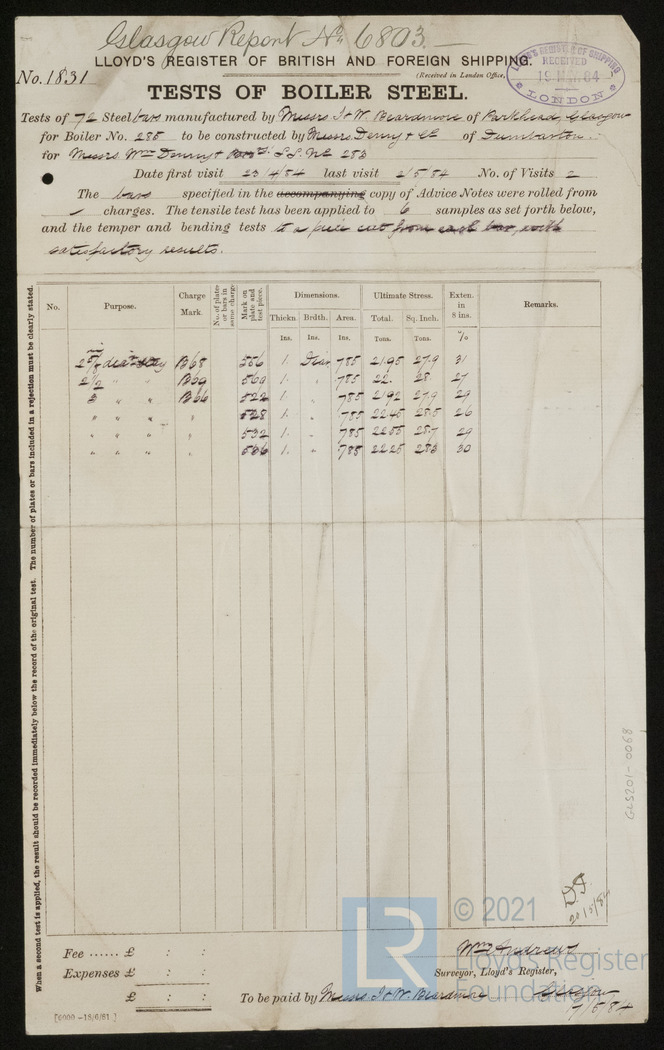 Glasgow Report No. 6803.
LLOYD'S REGISTER OF BRITISH AND FOREIGN SHIPPING.
No. 1831
(Received in London Office,
LLOYD'S REGISTER OF SHIPPING RECEIVED 19 MAY 84 LONDON
TESTS OF BOILER STEEL.
Tests of 72 Steel bars manufactured by Messrs J & W. Beardmore of Parkhead, Glasgow
for Boiler No. 285 to be constructed by Messrs Denny & Co of Dumbarton.
for Messrs Wm Denny & Bros S.S. No 283
Date first visit 23/4/84 last visit 2/5/84 No. of Visits 2
The bars specified in the accompanying copy of Advice Notes were rolled from
charges. The tensile test has been applied to 6 samples as set forth below,
and the temper and bending tests to a piece cut from each bar, with
satisfactory results.
No. Purpose. Charge Mark. No. of plates or bars in same charge Mark on plate and test piece. Dimensions. Ultimate Stress. Exten. in 8 ins. Remarks.
Thickn. Brdth. Area. Total. Sq. Inch.
Ins. Ins. Ins. Tons. Tons. %
B68 556 1. Diar 785 21.95 27.9 31
2 1/2 " " B59 569 1. " 785 22. 28. 27
3 " " B66 522 1. " 785 21.92 27.9 29
" " " " 528 1. " 785 22.45 28.5 26
" " " " 532 1. " 785 22.55 28.7 29
" " " " 536 1. " 785 22.25 28.3 30
When a second test is applied, the result should be recorded immediately below the record of the original test. The number of plates or bars included in a rejection must be clearly stated.
GLS201-0068
20/5/84
Fee ...... £ : :
Expenses £ : :
£ : :
Wm Andrews
Surveyor, Lloyd's Register,
To be paid by Messrs. J & W. Beardmore Glasgow
17/5/84
[6000—18/6/81]
LR © 2021
Lloyd's Register
Foundation